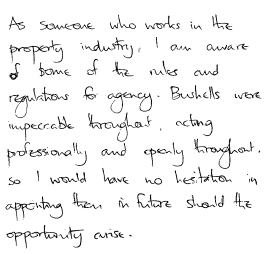 As someone who works in the
property industry, I am aware
of some of the rules and
regulations for agency. Bushells were
impeccable throughout, acting
professionally and openly throughout,
so I would have no hesitation in
appointing them in future should the
opportunity arise.